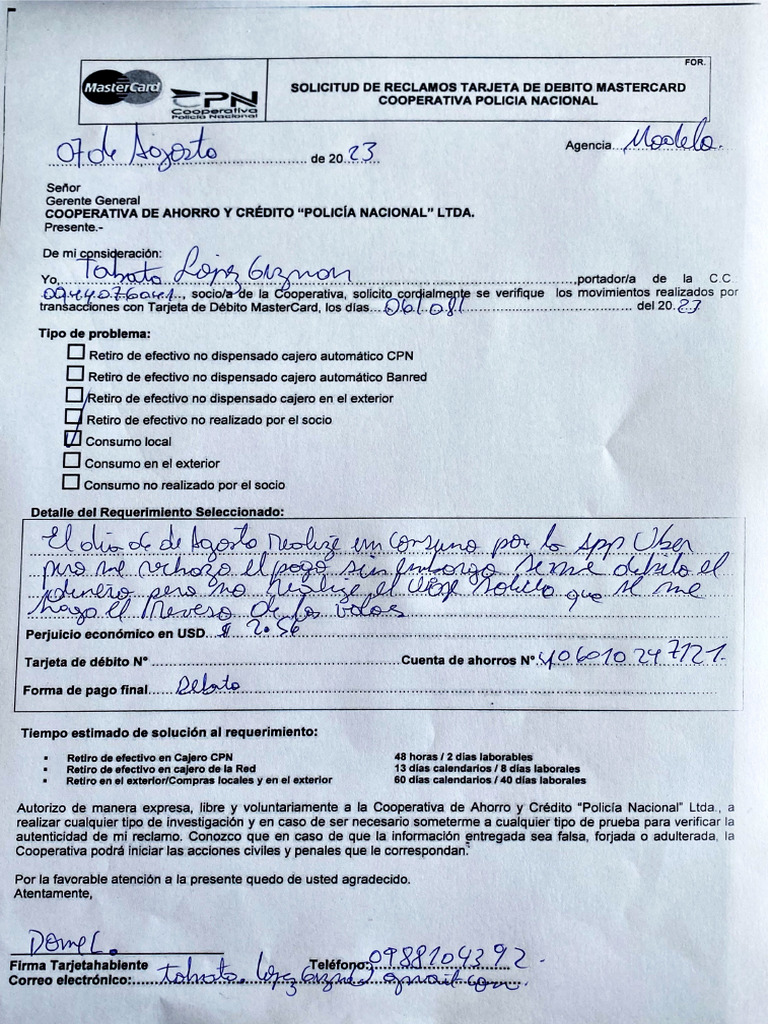 FOR.
MasterCard CPN
Cooperativa
Policía Nacional
SOLICITUD DE RECLAMOS TARJETA DE DEBITO MASTERCARD
COOPERATIVA POLICIA NACIONAL
07 de Agosto de 20 23 Agencia Modelo.
Señor
Gerente General
COOPERATIVA DE AHORRO Y CRÉDITO “POLICÍA NACIONAL” LTDA.
Presente.-
De mi consideración:
Yo, López Guzman ,portador/a de la C.C.
, socio/a de la Cooperativa, solicito cordialmente se verifique los movimientos realizados por
transacciones con Tarjeta de Débito MasterCard, los días del 20 23
Tipo de problema:
Retiro de efectivo no dispensado cajero automático CPN
Retiro de efectivo no dispensado cajero automático Banred
Retiro de efectivo no dispensado cajero en el exterior
Retiro de efectivo no realizado por el socio
Consumo local
Consumo en el exterior
Consumo no realizado por el socio
Detalle del Requerimiento Seleccionado:
El dia 06 de Agosto realize un consumo por la app Uber
pero me rechazo el pago sin embargo se me debito el
dinero pero no realize el solicito que se me
haga el Reverso de los valores
Perjuicio económico en USD. $ 2.56
Tarjeta de débito Nº Cuenta de ahorros Nº 406010247121
Forma de pago final Debito
Tiempo estimado de solución al requerimiento:
▪ Retiro de efectivo en Cajero CPN 48 horas / 2 días laborables
▪ Retiro de efectivo en cajero de la Red 13 días calendarios / 8 días laborales
▪ Retiro en el exterior/Compras locales y en el exterior 60 días calendarios / 40 días laborales
Autorizo de manera expresa, libre y voluntariamente a la Cooperativa de Ahorro y Crédito “Policía Nacional” Ltda., a
realizar cualquier tipo de investigación y en caso de ser necesario someterme a cualquier tipo de prueba para verificar la
autenticidad de mi reclamo. Conozco que en caso de que la información entregada sea falsa, forjada o adulterada, la
Cooperativa podrá iniciar las acciones civiles y penales que le correspondan.
Por la favorable atención a la presente quedo de usted agradecido.
Atentamente,
Firma Tarjetahabiente Teléfono: 0988104392
Correo electrónico: